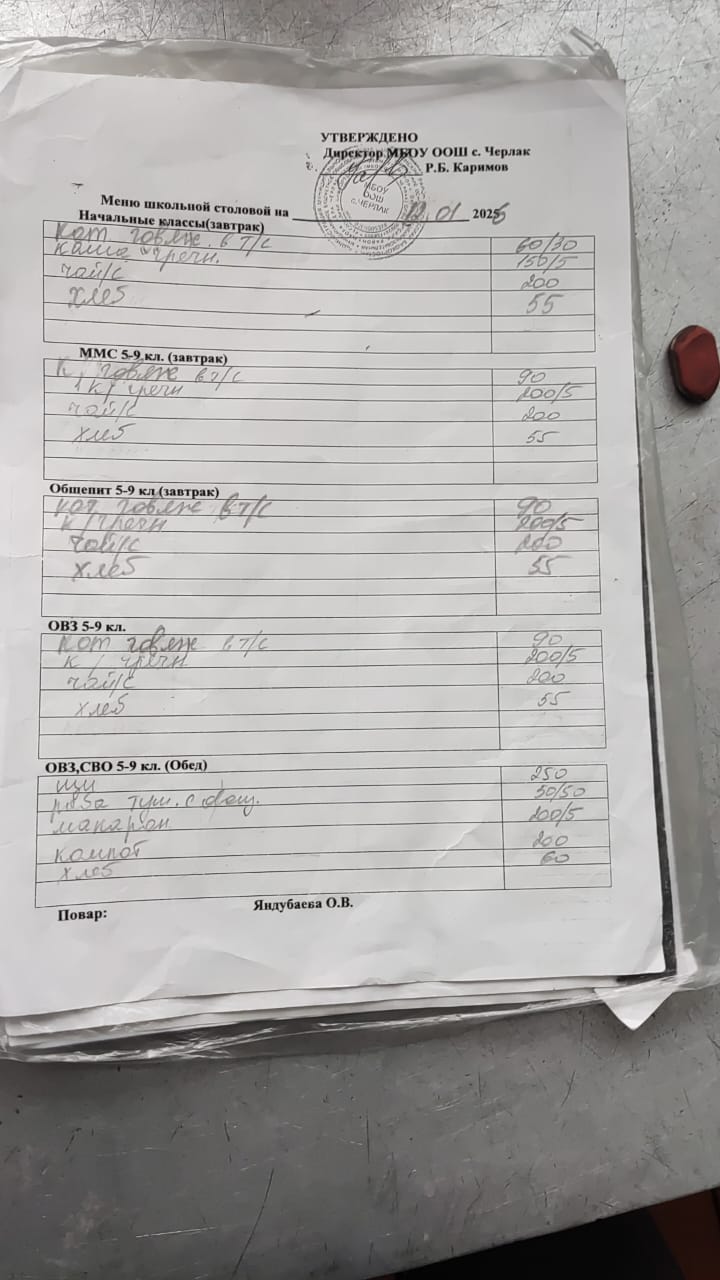 УТВЕРЖДЕНО
Директор МБОУ ООШ с. Черлак
Р.Б. Каримов
МБОУ
ООШ
с. ЧЕРЛАК
Меню школьной столовой на 12.01 2026
Начальные классы(завтрак)
Кот говяж. в т/с 60/30
каша гречн. 150/5
чай/с 200
хлеб 55
ММС 5-9 кл. (завтрак)
К, говяж в т/с 90
к/гречн 200/5
чай/с 200
хлеб 55
Общепит 5-9 кл (завтрак)
кот говяж в т/с 90
к/гречн 200/5
чай/с 200
хлеб 55
ОВЗ 5-9 кл.
Кот говяж в т/с 90
к / гречн 200/5
чай/с 200
хлеб 55
ОВЗ,СВО 5-9 кл. (Обед)
щи 250
рыба туш. с овощ. 50/50
макарон 200/5
компот 200
хлеб 60
Повар: Яндубаева О.В.